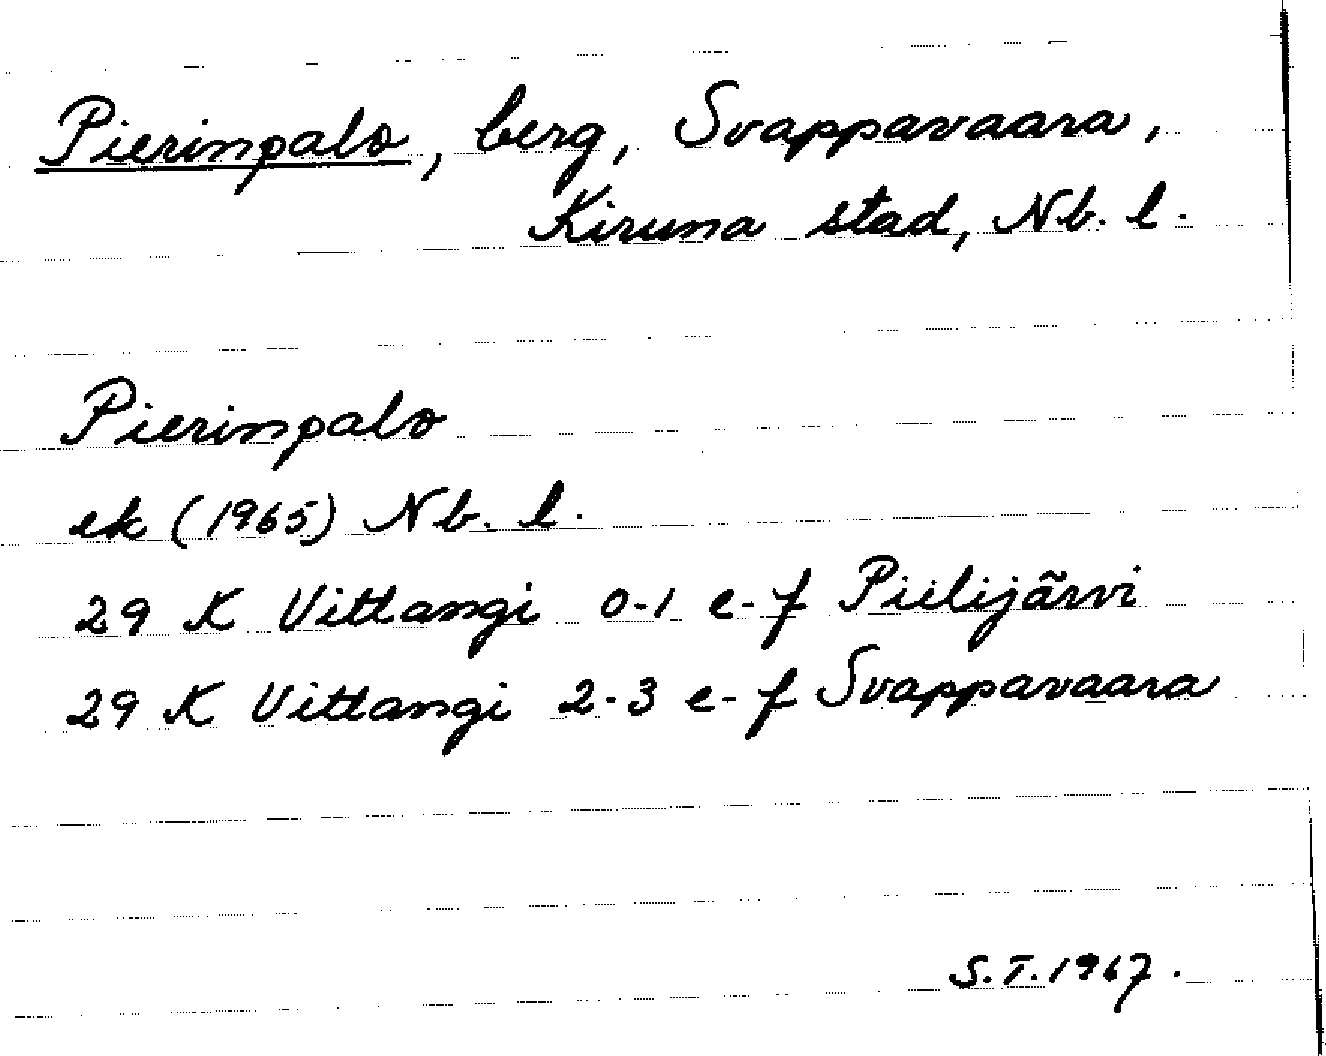 Pierinpalo, berg, Svappavaara,
Kiruna stad, Nb. l.
Pierinpalo
ek (1965) Nb. l.
29 K Vittangi 0-1 e-f Piilijärvi
29 K Vittangi 2-3 e-f Svappavaara
S.T. 1967.